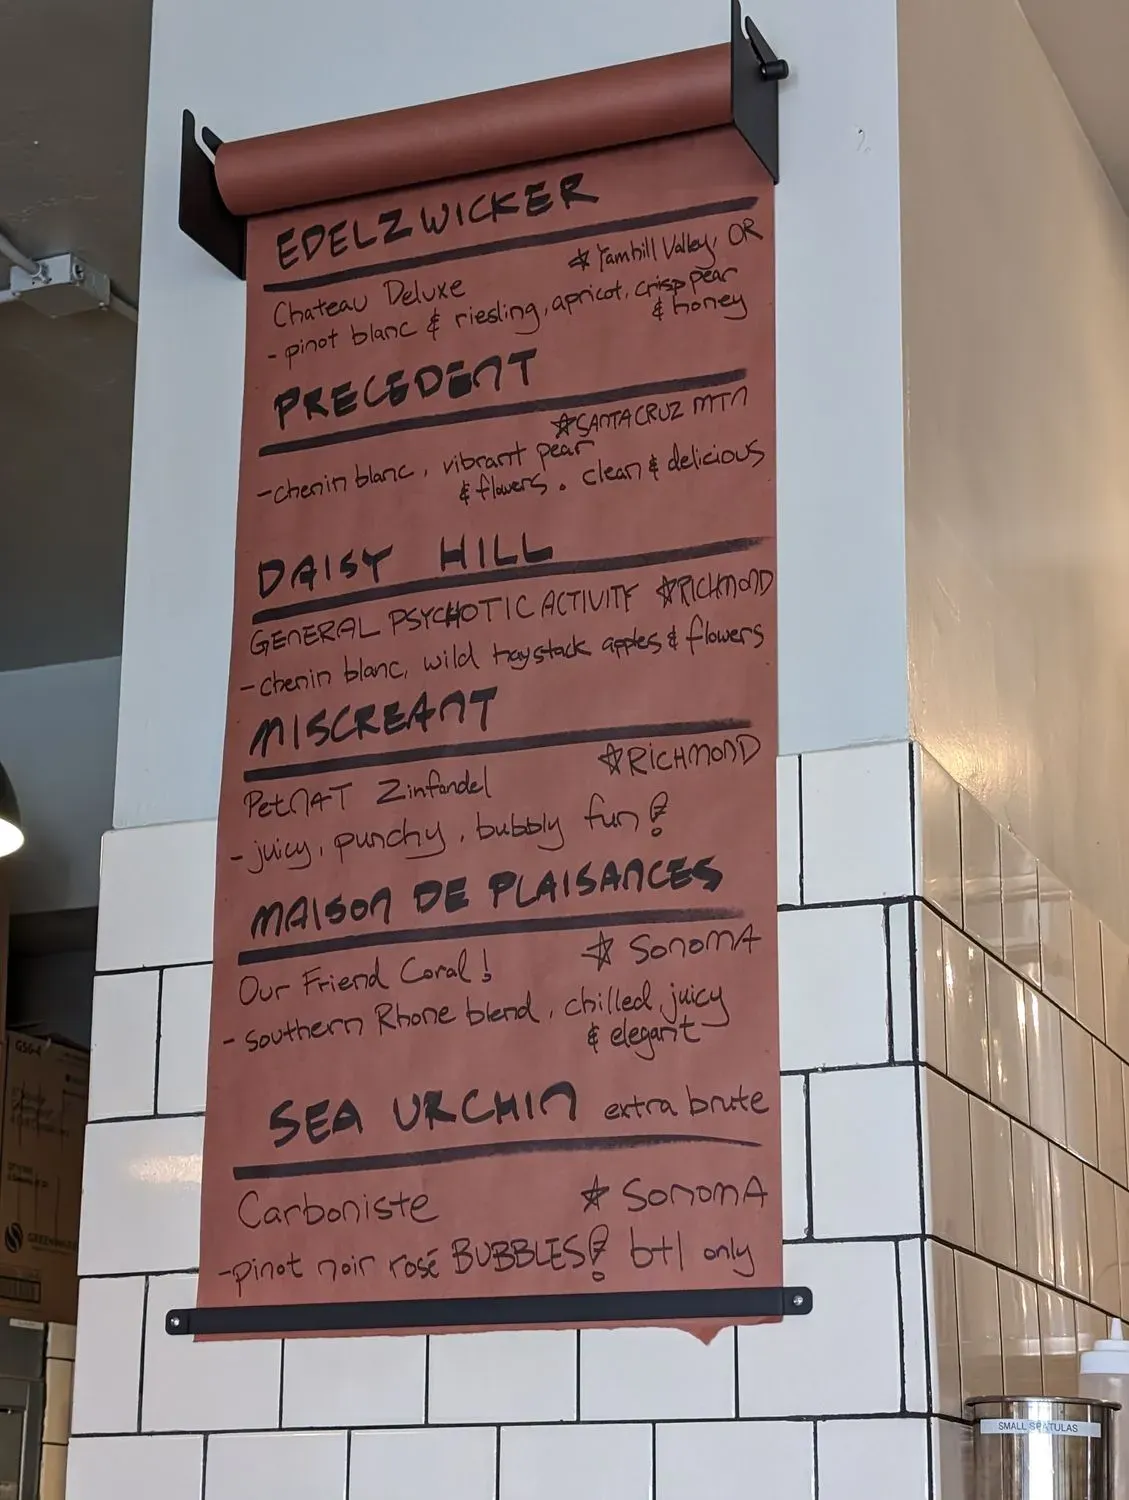 EDELZWICKER
Chateau Deluxe ☆ Yamhill Valley, OR
- pinot blanc & riesling, apricot, crisp pear
& honey
PRECEDENT
☆ SANTA CRUZ MTN
- chenin blanc, vibrant pear
& flowers. clean & delicious
DAISY HILL
GENERAL PSYCHOTIC ACTIVITY ☆ RICHMOND
- chenin blanc, wild haystack apples & flowers
MISCREANT
PetNAT Zinfandel ☆ RICHMOND
- juicy, punchy, bubbly fun!
MAISON DE PLAISANCES
Our Friend Coral! ☆ SONOMA
- southern Rhone blend, chilled, juicy
& elegant
SEA URCHIN extra brute
Carboniste ☆ SONOMA
- pinot noir rosé BUBBLES! btl only
GSG-4
SMALL SPATULAS